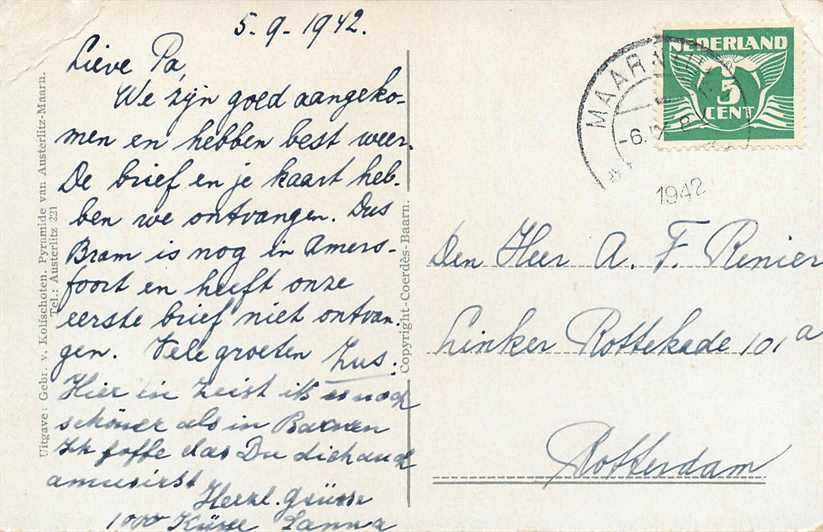 5-9-1942.
Lieve Pa,
We zijn goed aangeko-
men en hebben best weer.
De brief en je kaart heb-
ben we ontvangen. Dus
Bram is nog in Amers-
foort en heeft onze
eerste brief niet ontvan-
gen. Vele groeten Zus.
Hier in Zeist ist es noch
schöner als in
Ich hoffe das Du dich auch
amusirst
Herzl. Grüsse
1000 Küsse
Uitgave: Gebr. v. Kolfschoten, Pyramide van Austerlitz-Maarn.
Tel.: Austerlitz 221
Copyright-Coerdès-Baarn.
NEDERLAND
5
CENT
MAARN
-6.
1942
Den Heer A. F. Renier
Linker Rottekade 101a
Rotterdam